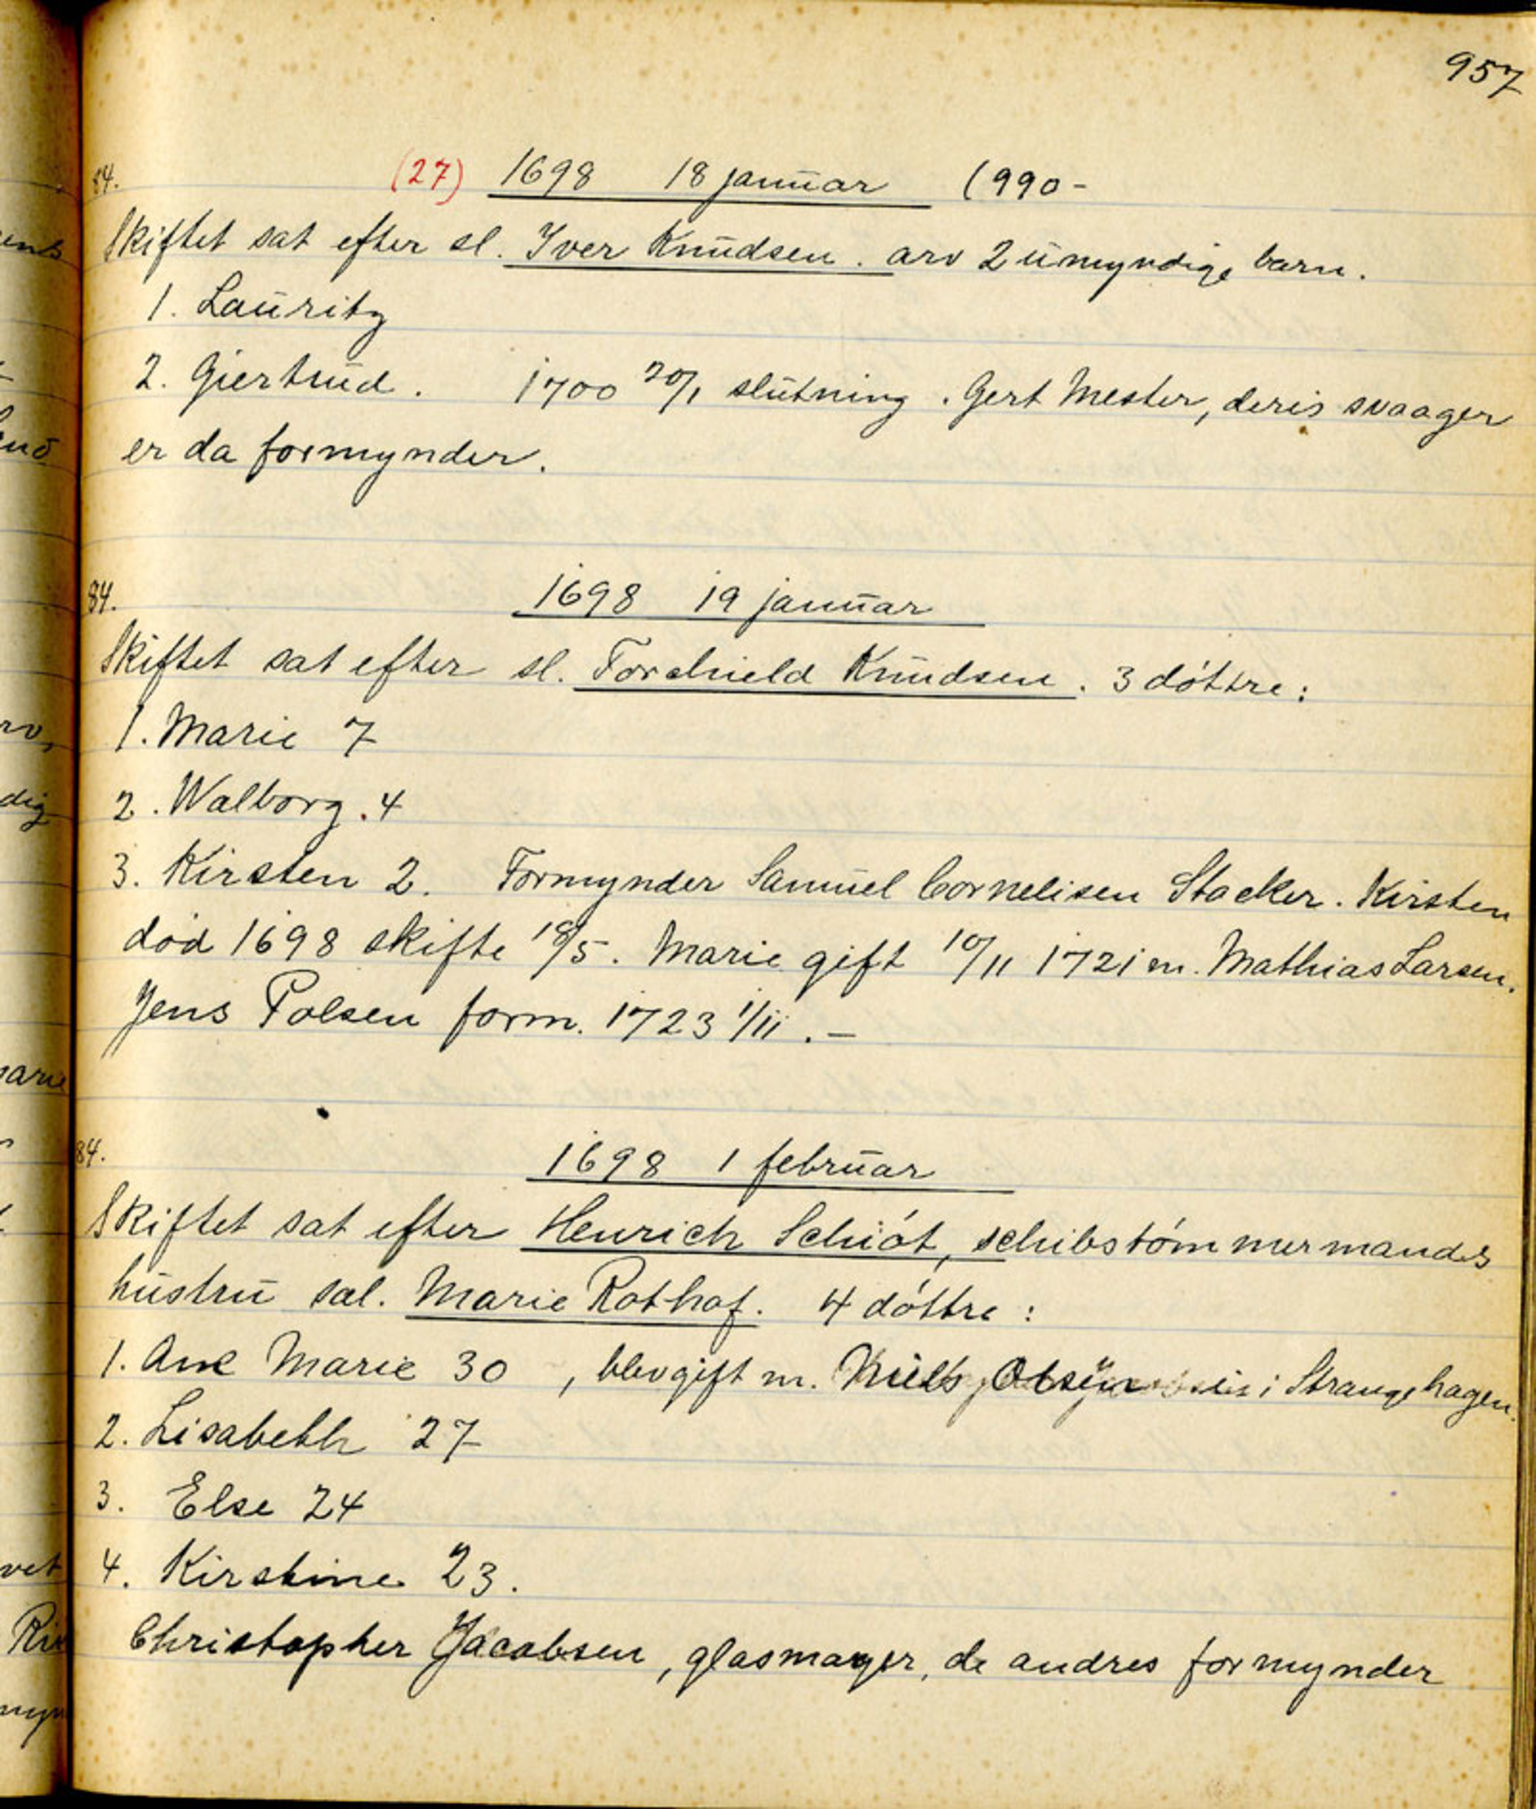 957
84. (27) 1698 18 januar (990-
Skiftet sat efter sl. Iver Knudsen. arv 2 umyndige barn.
1. Lauritz
2. Giertrud. 1700 20/1 slutning. Gert Mester, deris svaager
er da formynder.
84. 1698 19 januar
Skiftet sat efter sl. Torchield Knudsen. 3 döttre:
1. Marie 7
2. Walborg. 4
3. Kirsten 2. Formynder Samuel Cornelisen Stocker. Kirsten
död 1698 skifte 18/5. Marie gift 10/11 1721 m. Mathias Larsen.
Jens Polsen form. 1723 1/11. —
84. 1698 1 februar
Skiftet sat efter Henrich Schiöt, schibstömmermands
hustru sal. Marie Rothof. 4 döttre:
1. Ane Marie 30, blev gift m. Niels Olsen i Strangehagen.
2. Lisabeth 27
3. Else 24
4. Kirstine 23.
Christopher Jacobsen, glasmager, de andres formynder